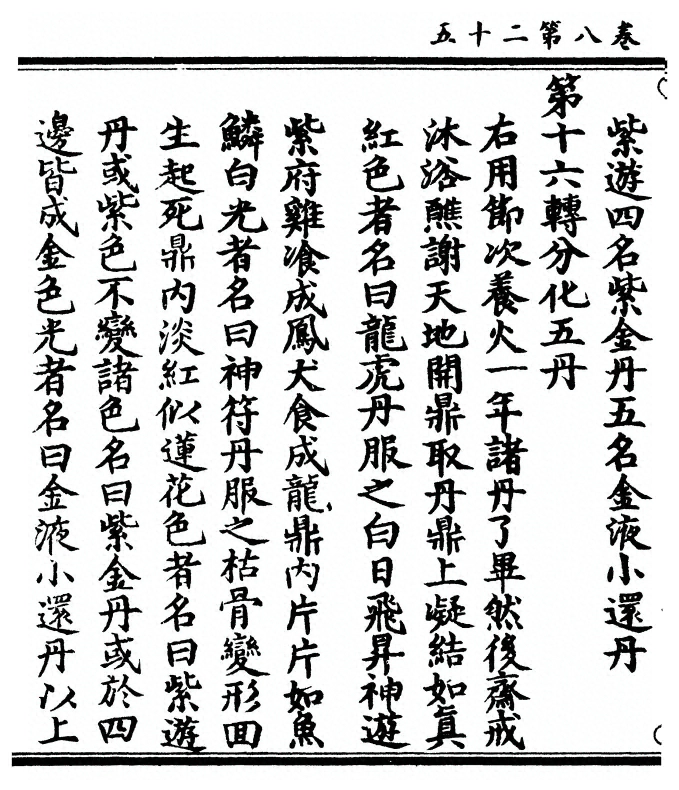 卷八第二十五
紫遊四名紫金丹五名金液小還丹
第十六轉分化五丹
右用節次養火一年諸丹了畢然後齋戒
沐浴醮謝天地開鼎取丹鼎上凝結如真
紅色者名曰龍虎丹服之白日飛昇神遊
紫府雞飡成鳳犬食成龍鼎内片片如魚
鱗白光者名曰神符丹服之枯骨變形囬
生起死鼎内淡紅似蓮花色者名曰紫遊
丹或紫色不變諸色名曰紫金丹或於四
邊皆成金色光者名曰金液小還丹以上